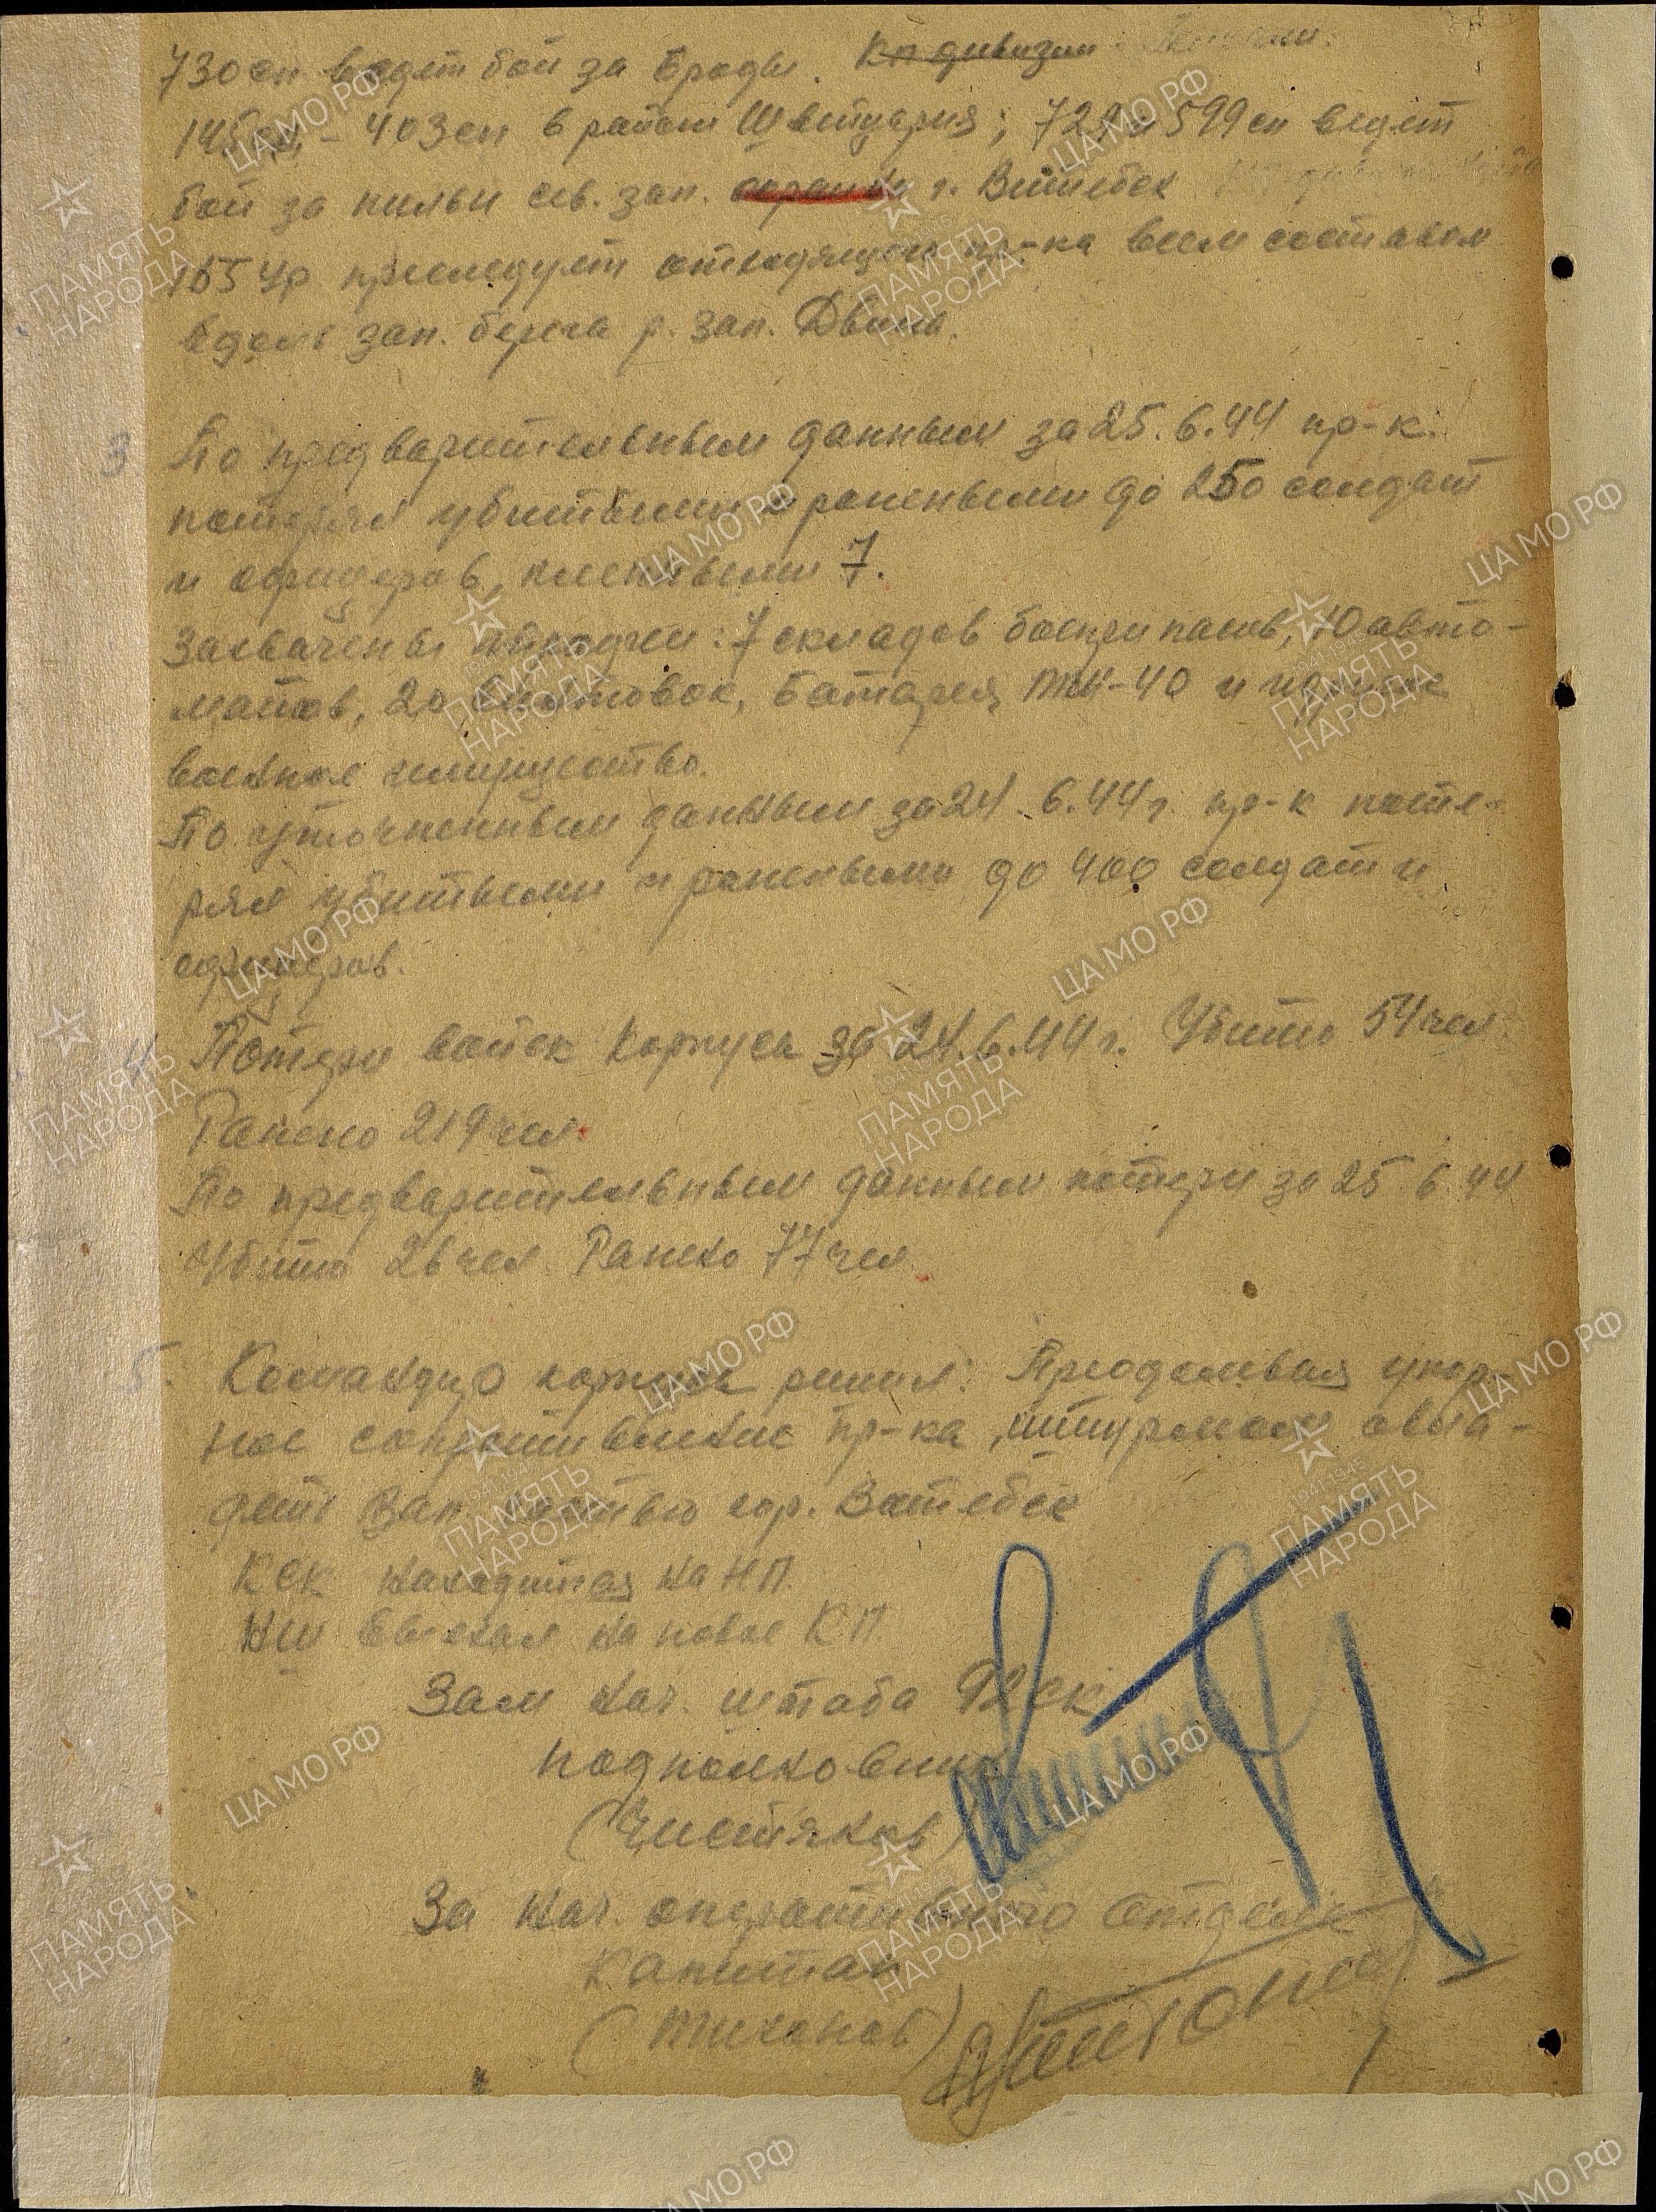 730 сп ведет бой за Броды. Кп дивизии -
145 сд - 403 сп в район Швейцария; 729 и 599 сп ведет
бой за сев. зап. окраину г. Витебск
155 ур преследует отходящего пр-ка всем составом
вдоль зап. берега р. Зап. Двина.
3 По предварительным данным за 25.6.44 пр-к
потерял убитыми и ранеными до 250 солдат
и офицеров, пленными 7.
Захвачены трофеи: 7 складов боеприпасов, 10 авто-
матов, 20 винтовок, батарея и другое
военное имущество.
По уточненным данным за 24.6.44 г. пр-к поте-
рял убитыми и ранеными до 400 солдат и
офицеров.
4. Потери войск Корпуса за 24.6.44 г. Убито 54 чел
Ранено 219 чел.
По предварительным данным потери за 25.6.44
Убито 26 чел. Ранено 77 чел.
5. Командир корпуса решил: Преодолевая упор-
ное сопротивление пр-ка, штурмом овла-
деть Зап. частью гор. Витебск
КСК находится на НП.
НШ выехал на новое КП
Зам нач. штаба 92 ск
подполковник
(Чистяков)
За нач. оперативного отдела
капитан
(Тихонов)
ПАМЯТЬ НАРОДА
1941-1945
ЦА МО РФ